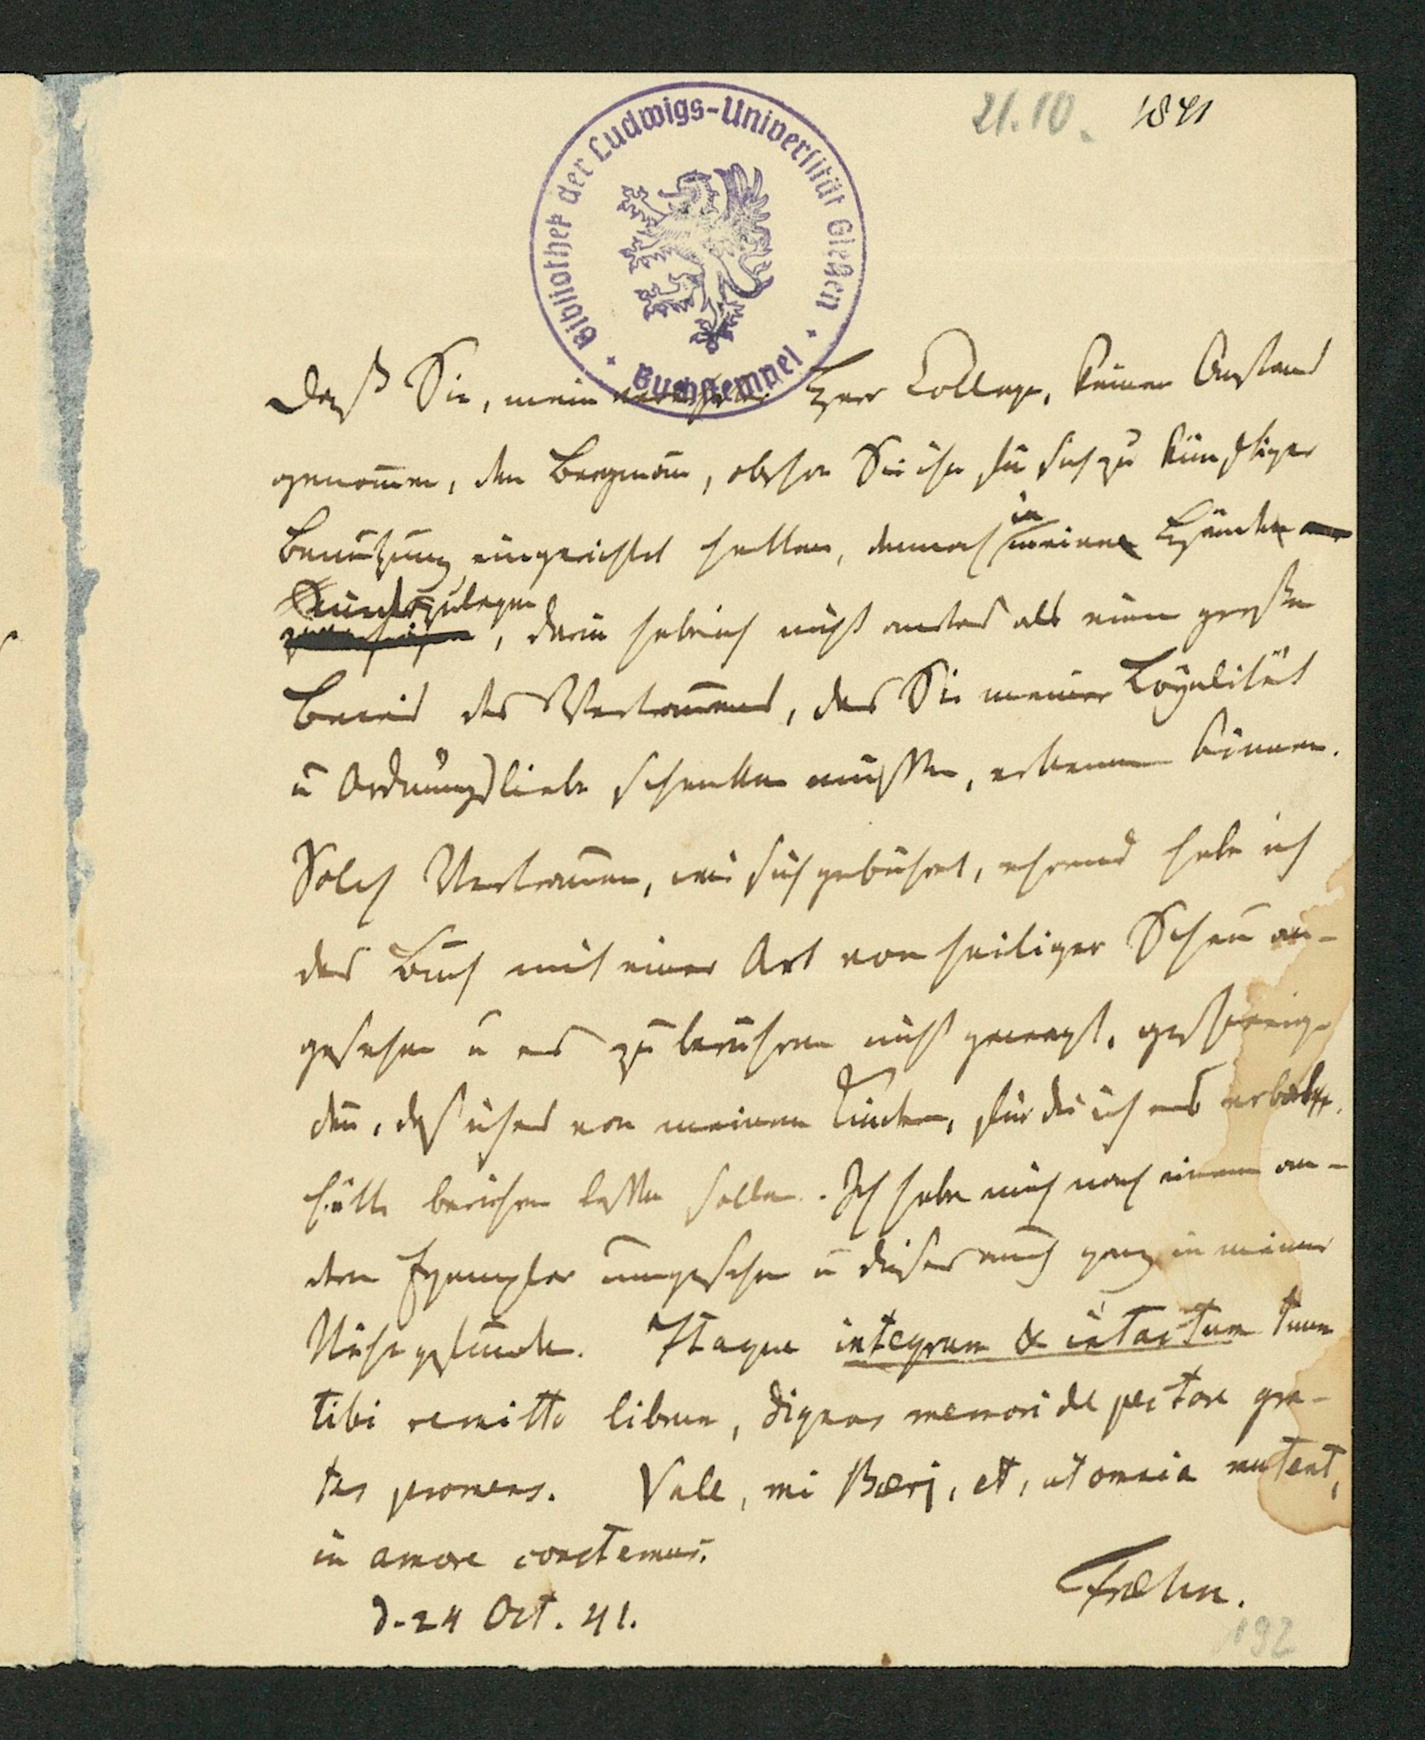 21.10. 1841
Bibliothek der Ludwigs-Universität Gießen
Buchstempel
Daß Sie, mein verehrter Herr College, keinen Anstand
genom̄en, den Bergman̄, obschon Sie ihn für sich zu künftiger
Benutzung eingerichtet hatten, dennoch in meine Hände
niederzulegen, darin habe ich nicht anders als einen großen
Beweis des Vertrauens, das Sie meiner Loyalität
u Ordnungsliebe schenken mußten, erkennen können.
Solch Vertrauen, wie sichs gebührt, ehrend habe ich
das Buch mit einer Art von heiliger Scheu an-
gesehen u es zu berühren nicht gewagt, geschweige
den̄, daß ich es von meinen Kindern, für die ich es erbeten
hätte berühren lassen sollen. Ich habe mich nach einem an-
dern Exemplar umgesehen u dieses auch ganz in meiner
Nähe gefunden. Itaque integrum & intactum tuum
tibi remitto librum, dignas memori de pectore gra-
tes promens. Vale, mi Bærj, et, ut omnia mutent,
in amore constemus.
Fræhn.
d. 24 Oct. 41.
192